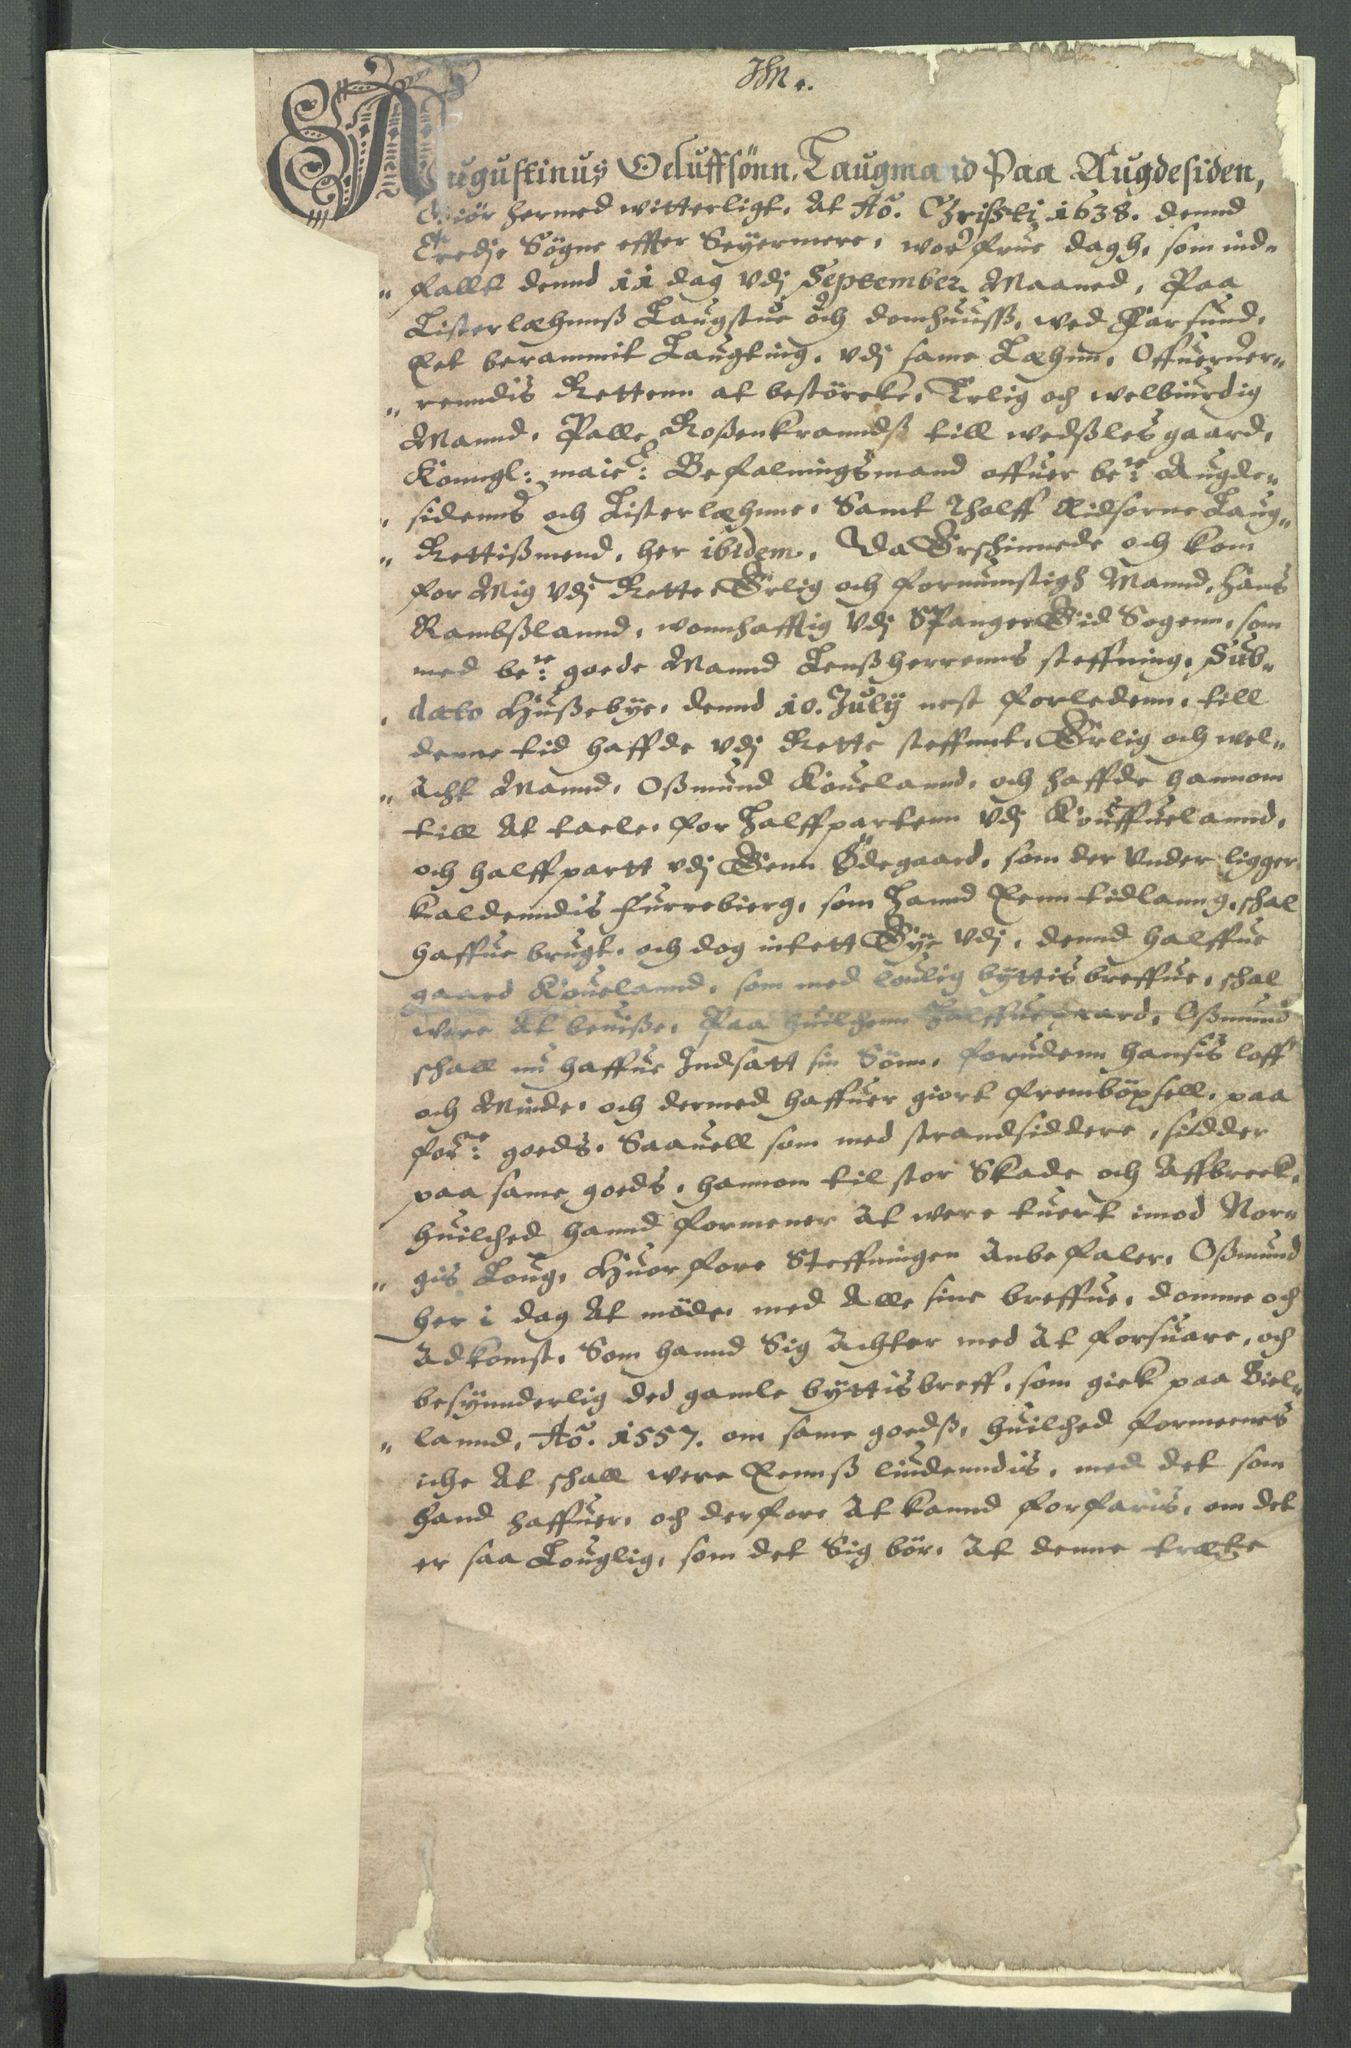 IHM.
Augustinus Oeluffsønn, Laugmand Paa Augdesiden,
Giör hermed witterligt, At Aõ. Christi 1638. dennd
tredje Sögne effter Seyermere, wor frue dagh, som ind-
" fallt dennd 11 dag vdj September Maaned, Paa
Listerlæhnnß Laugstue och domhuusß, wed Farsund,
Ret berammit Laugting, vdj same Læhnn, Offuerwer-
" renndis Rettenn at bestörcke, Erlig och welbiurdig
Mannd, Palle Roßenkranndß till wedßlesgaard,
Konngl: maie: Befalningsmand offuer be:te Augde-
" sidenns och Listerlæhnne, Samt Tholff Eidsorne Laug-
" Rettißmend, her ibidem, Da Erschinnede och kom
for Mig vdj Rette Erlig och fornumstigh Mannd, Hans
Rambßlannd, wonnhafftig vdj SPangerEid Sogenn, som
med be:te goede Mannd Lenßherrenns steffning, Sub-
" dato Hußebye, dennd 10. Julij nest forledenn, till
denne tid haffde vdj Rette steffnnt, Erlig och wel-
" Acht Mannd, Oßmund Kouelannd, och haffde hannom
till At taele, for Halffpartenn vdj Kouffuelannd,
och halffpartt vdj Eenn Ödegaard, som der vnder ligger
kaldenndis furrebierg, som Hannd Eenn tidlanng, schal
haffue brugt, och dog intett Eye vdj, dennd halffue
gaard Kouelannd, som med loulig byttis breffue, schal
were At beuiße, Paa huilchenn Halffuegaard, Oßmund
schall nu haffue Indsatt sin Sönn, forudenn hansis loff
och Minde, och dermed haffuer giort fremböxsell, paa
for:ne goeds, Saauell som med strandsiddere, sidder
paa same goeds, hannom til stor Skade och Affbreck,
huilched hannd formener At were tuert imod Nor-
" gis Loug, Huorfore Steffningen Anbefaler, Oßmund
her i dag At möde, med Alle sine breffue, domme och
Adkomst, Som hannd Sig Achter med At forsuare, och
besynnderlig ded gamle byttisbreff, som giek paa Biel-
" lannd, Aõ. 1557. om same goedß, huilched formeenes
iche At schall were Eennß liudenndis, med det som
hand haffuer, och derfore At kannd forfaris, om det
er saa Louglig, som det Sig bör, At denne trætte